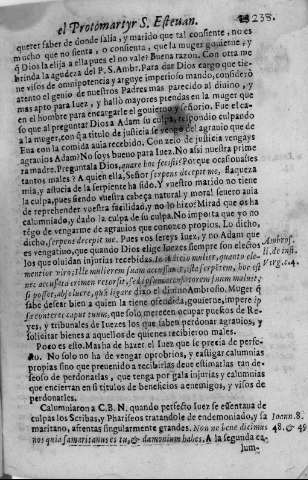 el Protomartyr S. Esteuan. 238.
querer saber de donde salia, y marido que tal consiente, no es
mucho que no sienta, o consienta, que la muger gouierne, y
q̃ Dios la elija a ella pues el no vale? Buena razon. Con otra me
brinda la agudeza del P. S. Ambr. Para dar Dios cargo que tie-
ne visos de omnipotencia y arguye imperioso mando, consideró
atento el genio de nuestros Padres mas parecido al diuino, y
mas apto para Iuez, y halló mayores prendas en la muger que
en el hombre para encargarle el gouierno y señorio. Fue el ca-
so que al preguntar Dios a Adam su culpa, respondio culpando
a la muger, con q̃ a titulo de justicia se vengó del agrauio que de
Eua con la comida auia recebido. Con zelo de justicia vengays
agrauios Adam? No soys bueno para Iuez. No assi nuestra prime
ra madre. Preguntala Dios, quare hoc fecisti? Porque ocasionastes
tantos males? A quien ella, Señor serpens decepit me, flaqueza
mia, y astucia de la serpiente ha sido. Y vuestro marido no tiene
la culpa, pues siendo vuestra cabeça natural y moral? ueuro auia
de reprehender vuestra facilidad, y no lo hizo? Mirad que os ha
calumniado, y dado la culpa de su culpa. No importa que yo no
tengo de vengarme de agrauios que conozco propios. Lo dicho,
dicho, serpens decepit me. Pues vos sereys Iuez, y no Adam que
es vengatiuo, que quando Dios elige Iuezes siempre son electos
los que oluidan injurias recebidas.
sabe desear bien a quien la tiene ofendida, gouierne, impere ip
se conteret caput tuum, que solo merecen ocupar puestos de Re-
yes, y tribunales de Iuezes los que saben perdonar agrauios, y
solicitar bienes a aquellos de quienes recibieron males.
Poco es esso. Mas ha de hazer el Iuez que se precia de perfe-
cto. No solo no ha de vengar oprobrios, y castigar calumnias
propias sino que preuenido a recibirlas deue estimarlas tan de-
seoso de perdonarlas, que tenga por gala injurias y calumnias
que encierran en si titulos de beneficios a enemigos, y visos de
perdonarles.
Calumniaron a C. B. N. quando perfecto Iuez se ostentaua de
culpas los Scribas, y Phariseos tratandole de endemoniado, y sa
maritano, afrentas singularmente grandes. Non ne bene dicimus
nos quia samaritanus es tu, & dæmonium habes. A la segunda ca-
lum-
Ambros.
Ioann. 8.
48. & 49